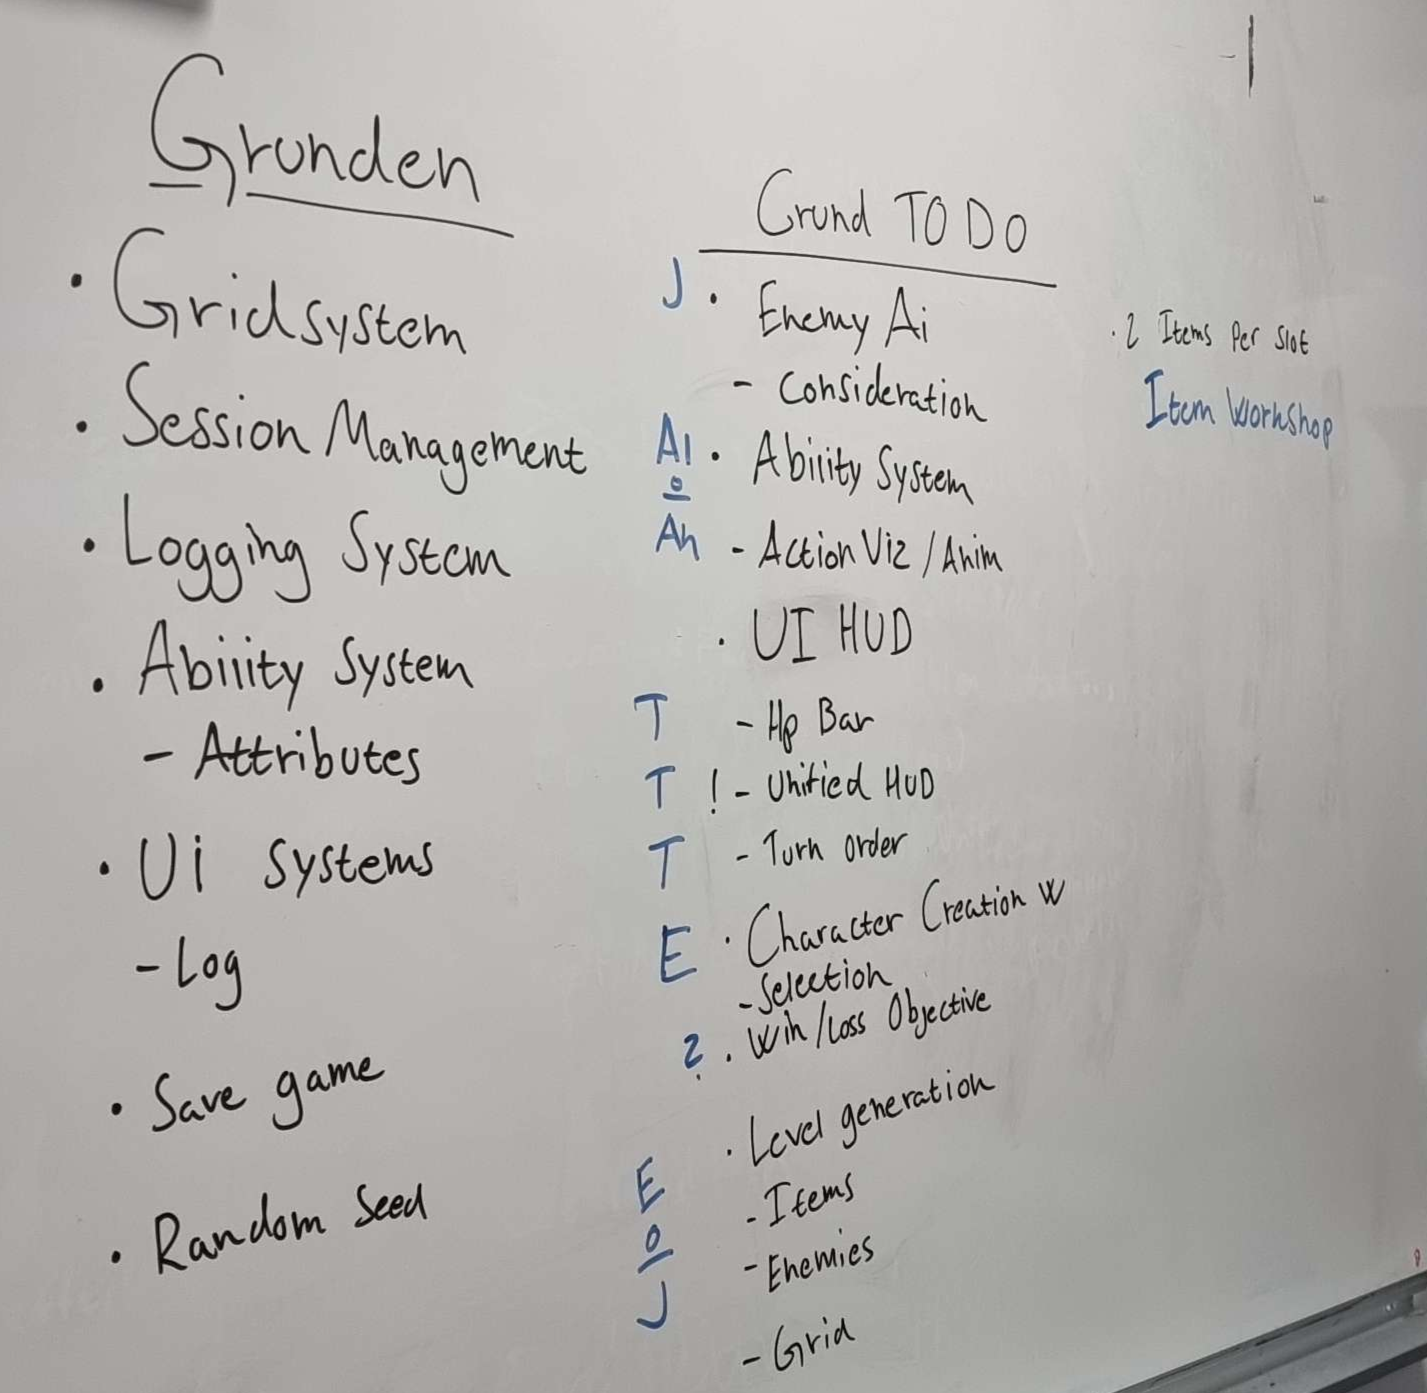 Grunden
· Gridsystem
· Session Management
· Logging System
· Ability System
- Attributes
· Ui Systems
- Log
· Save game
· Random Seed
Grund TO DO
J · Enemy Ai
- Consideration
Al · Ability System
o
An - Action Viz / Anim
· UI HUD
T - Hp Bar
T ! - Unified HUD
T - Turn order
E · Character Creation W
- Selection
? · Win/Loss Objective
· Level generation
E - Items
o - Enemies
J - Grid
· 2 Items Per Slot
Item Workshop